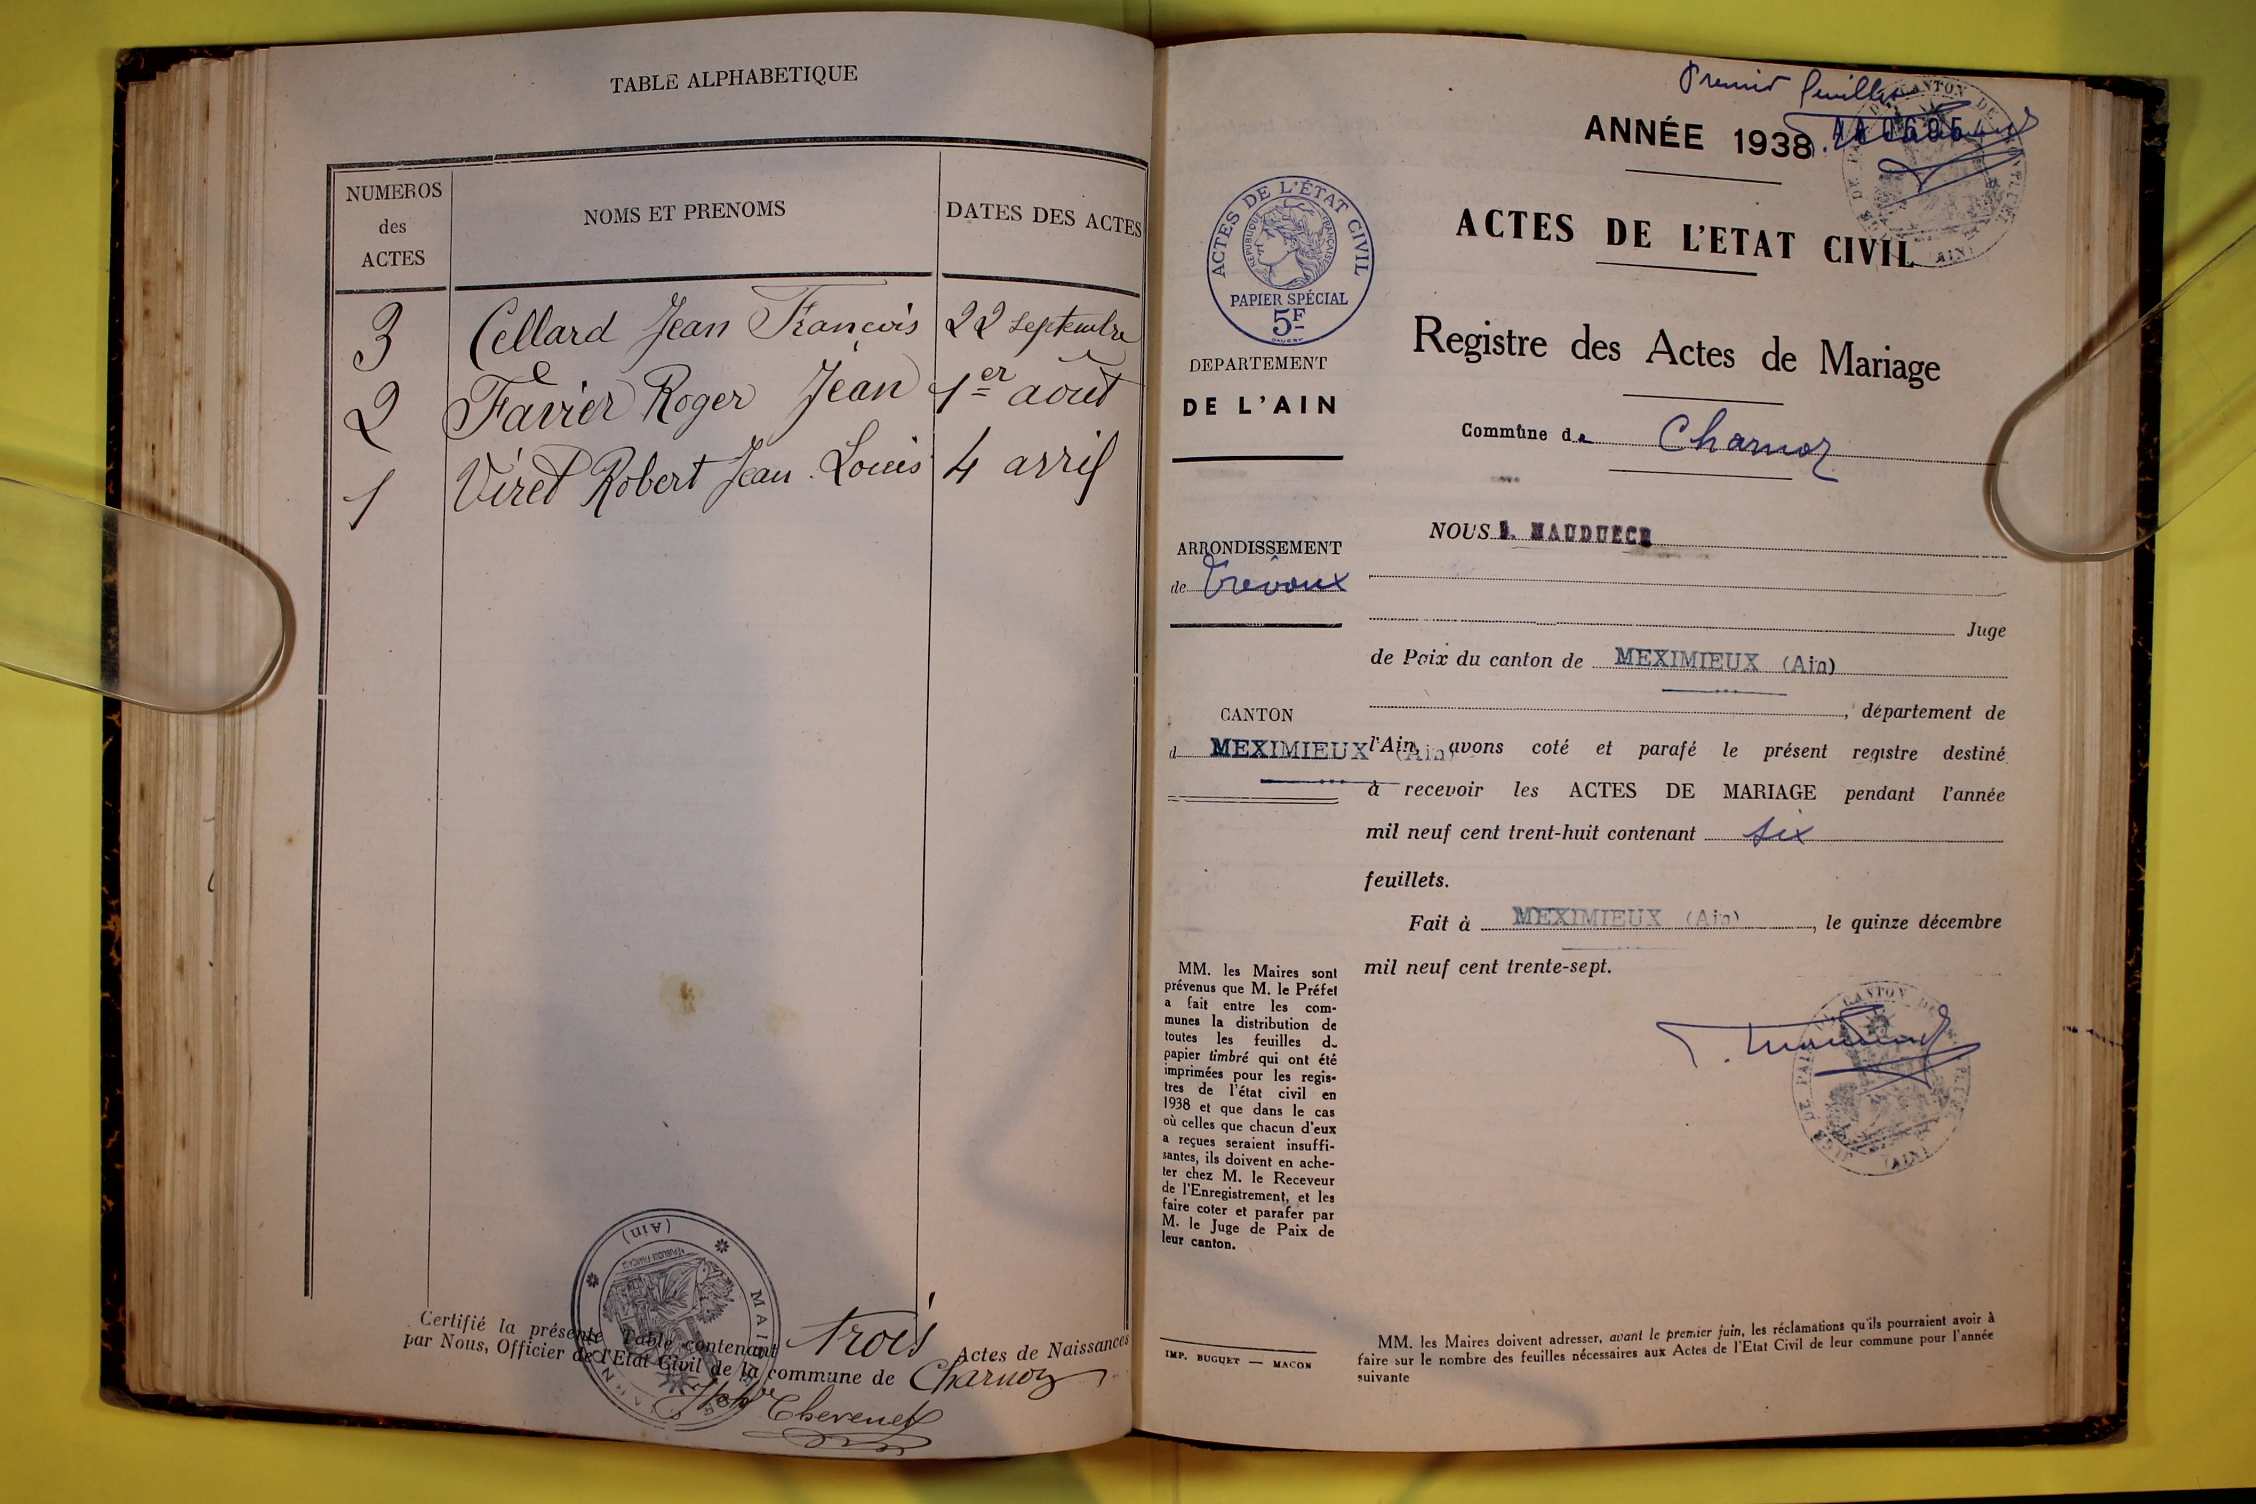 TABLE ALPHABETIQUE
NUMEROS
des
ACTES
NOMS ET PRENOMS
DATES DES ACTES
3 Cellard Jean François 22 septembre
2 Favier Roger Jean 1er août
1 Viret Robert Jean Louis 4 avril
Certifié la présente Table contenant trois Actes de Naissances
par Nous, Officier de l'Etat Civil de la commune de Charnoz
Thevenet
MAIRIE
(Ain)
REPUBLIQUE FRANÇAISE
Premier feuillet
ANNÉE 1938
ACTES DE L'ETAT CIVIL
Registre des Actes de Mariage
Commune de Charnoz
ACTES DE L'ÉTAT CIVIL
RÉPUBLIQUE FRANÇAISE
PAPIER SPÉCIAL
5F
DEPARTEMENT
DE L'AIN
ARRONDISSEMENT
de Trévoux
CANTON
d MEXIMIEUX (Ain)
NOUS MAUDUECH
Juge
de Paix du canton de MEXIMIEUX (Ain)
, département de
l'Ain, avons coté et parafé le présent registre destiné
à recevoir les ACTES DE MARIAGE pendant l'année
mil neuf cent trent-huit contenant six
feuillets.
Fait à MEXIMIEUX (Ain), le quinze décembre
mil neuf cent trente-sept.
MM. les Maires sont
prévenus que M. le Préfet
a fait entre les com-
munes la distribution de
toutes les feuilles de
papier timbré qui ont été
imprimées pour les regis-
tres de l'état civil en
1938 et que dans le cas
où celles que chacun d'eux
a reçues seraient insuffi-
santes, ils doivent en ache-
ter chez M. le Receveur
de l'Enregistrement, et les
faire coter et parafer par
M. le Juge de Paix de
leur canton.
IMP. BUGUET — MACON
MM. les Maires doivent adresser, avant le premier juin, les réclamations qu'ils pourraient avoir à
faire sur le nombre des feuilles nécessaires aux Actes de l'Etat Civil de leur commune pour l'année
suivante